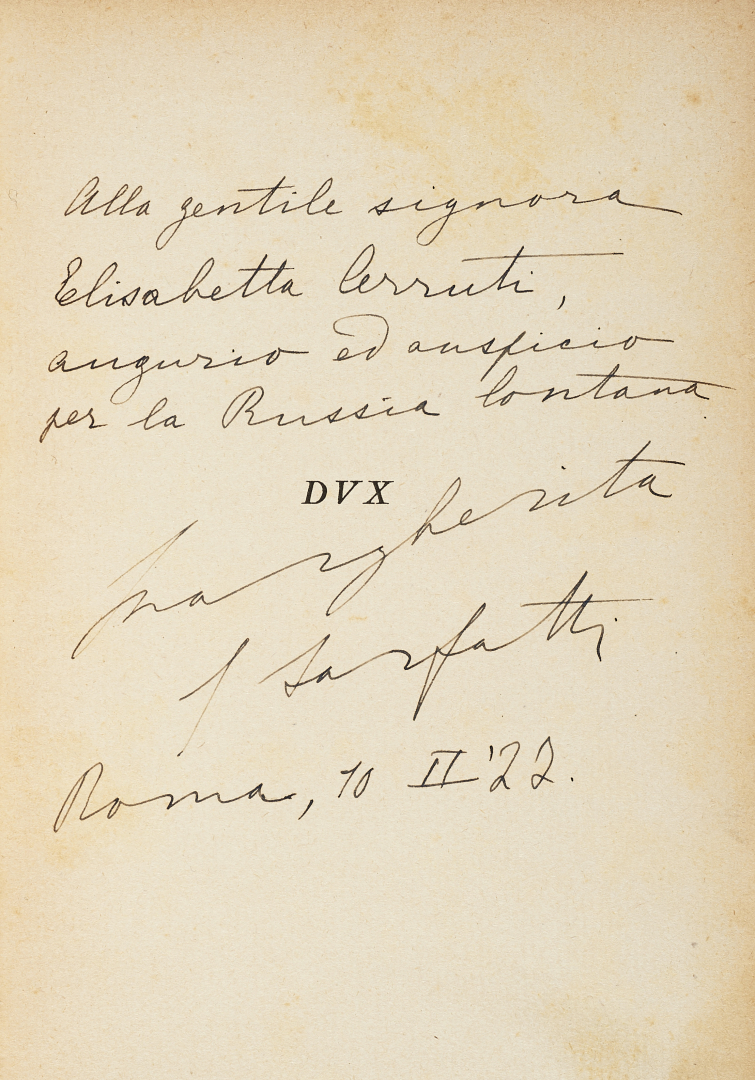 Alla gentile signora
Elisabetta Cerruti,
augurio ed auspicio
per la Russia lontana
DVX
Margherita
G Sarfatti
Roma, 10 II '22.